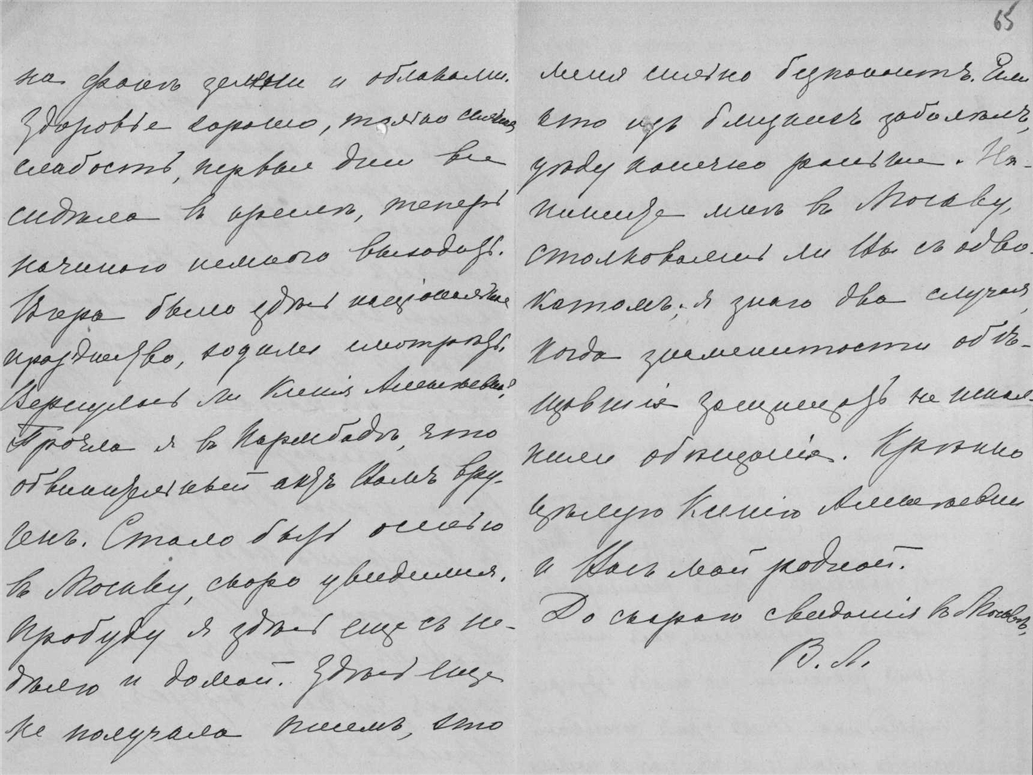 на фонѣ зелени и облаками.
Здоровье хорошо, только сильная
слабость, первые дни все
сидѣла в креслѣ, теперь
начинаю немного выходить.
Вчера было здѣсь національное
празднество, ходили смотрѣть.
Вернулась ли Ксенія Алексѣевна?
Прочла я в Карлсбадѣ, что
обвинительный актъ Вамъ вру-
ченъ. Стало быть осенью
в Москву, скоро увидимся.
Пробуду я здѣсь еще съ не-
дѣлю и домой. Здѣсь еще
не получала писемъ, это
65
меня сильно безпокоитъ. Если
кто изъ близкихъ заболѣлъ,
уѣду конечно раньше. На-
пишите мнѣ в Москву,
столковались ли Вы съ адво-
катомъ; я знаю два случая,
когда знаменитости обѣ-
щавшіе защищать не испол-
нили обѣщанія. Крѣпко
цѣлую Ксенію Алексѣевну
и Васъ мой родной.
До скораго свиданія в Москвѣ,
В. Л.